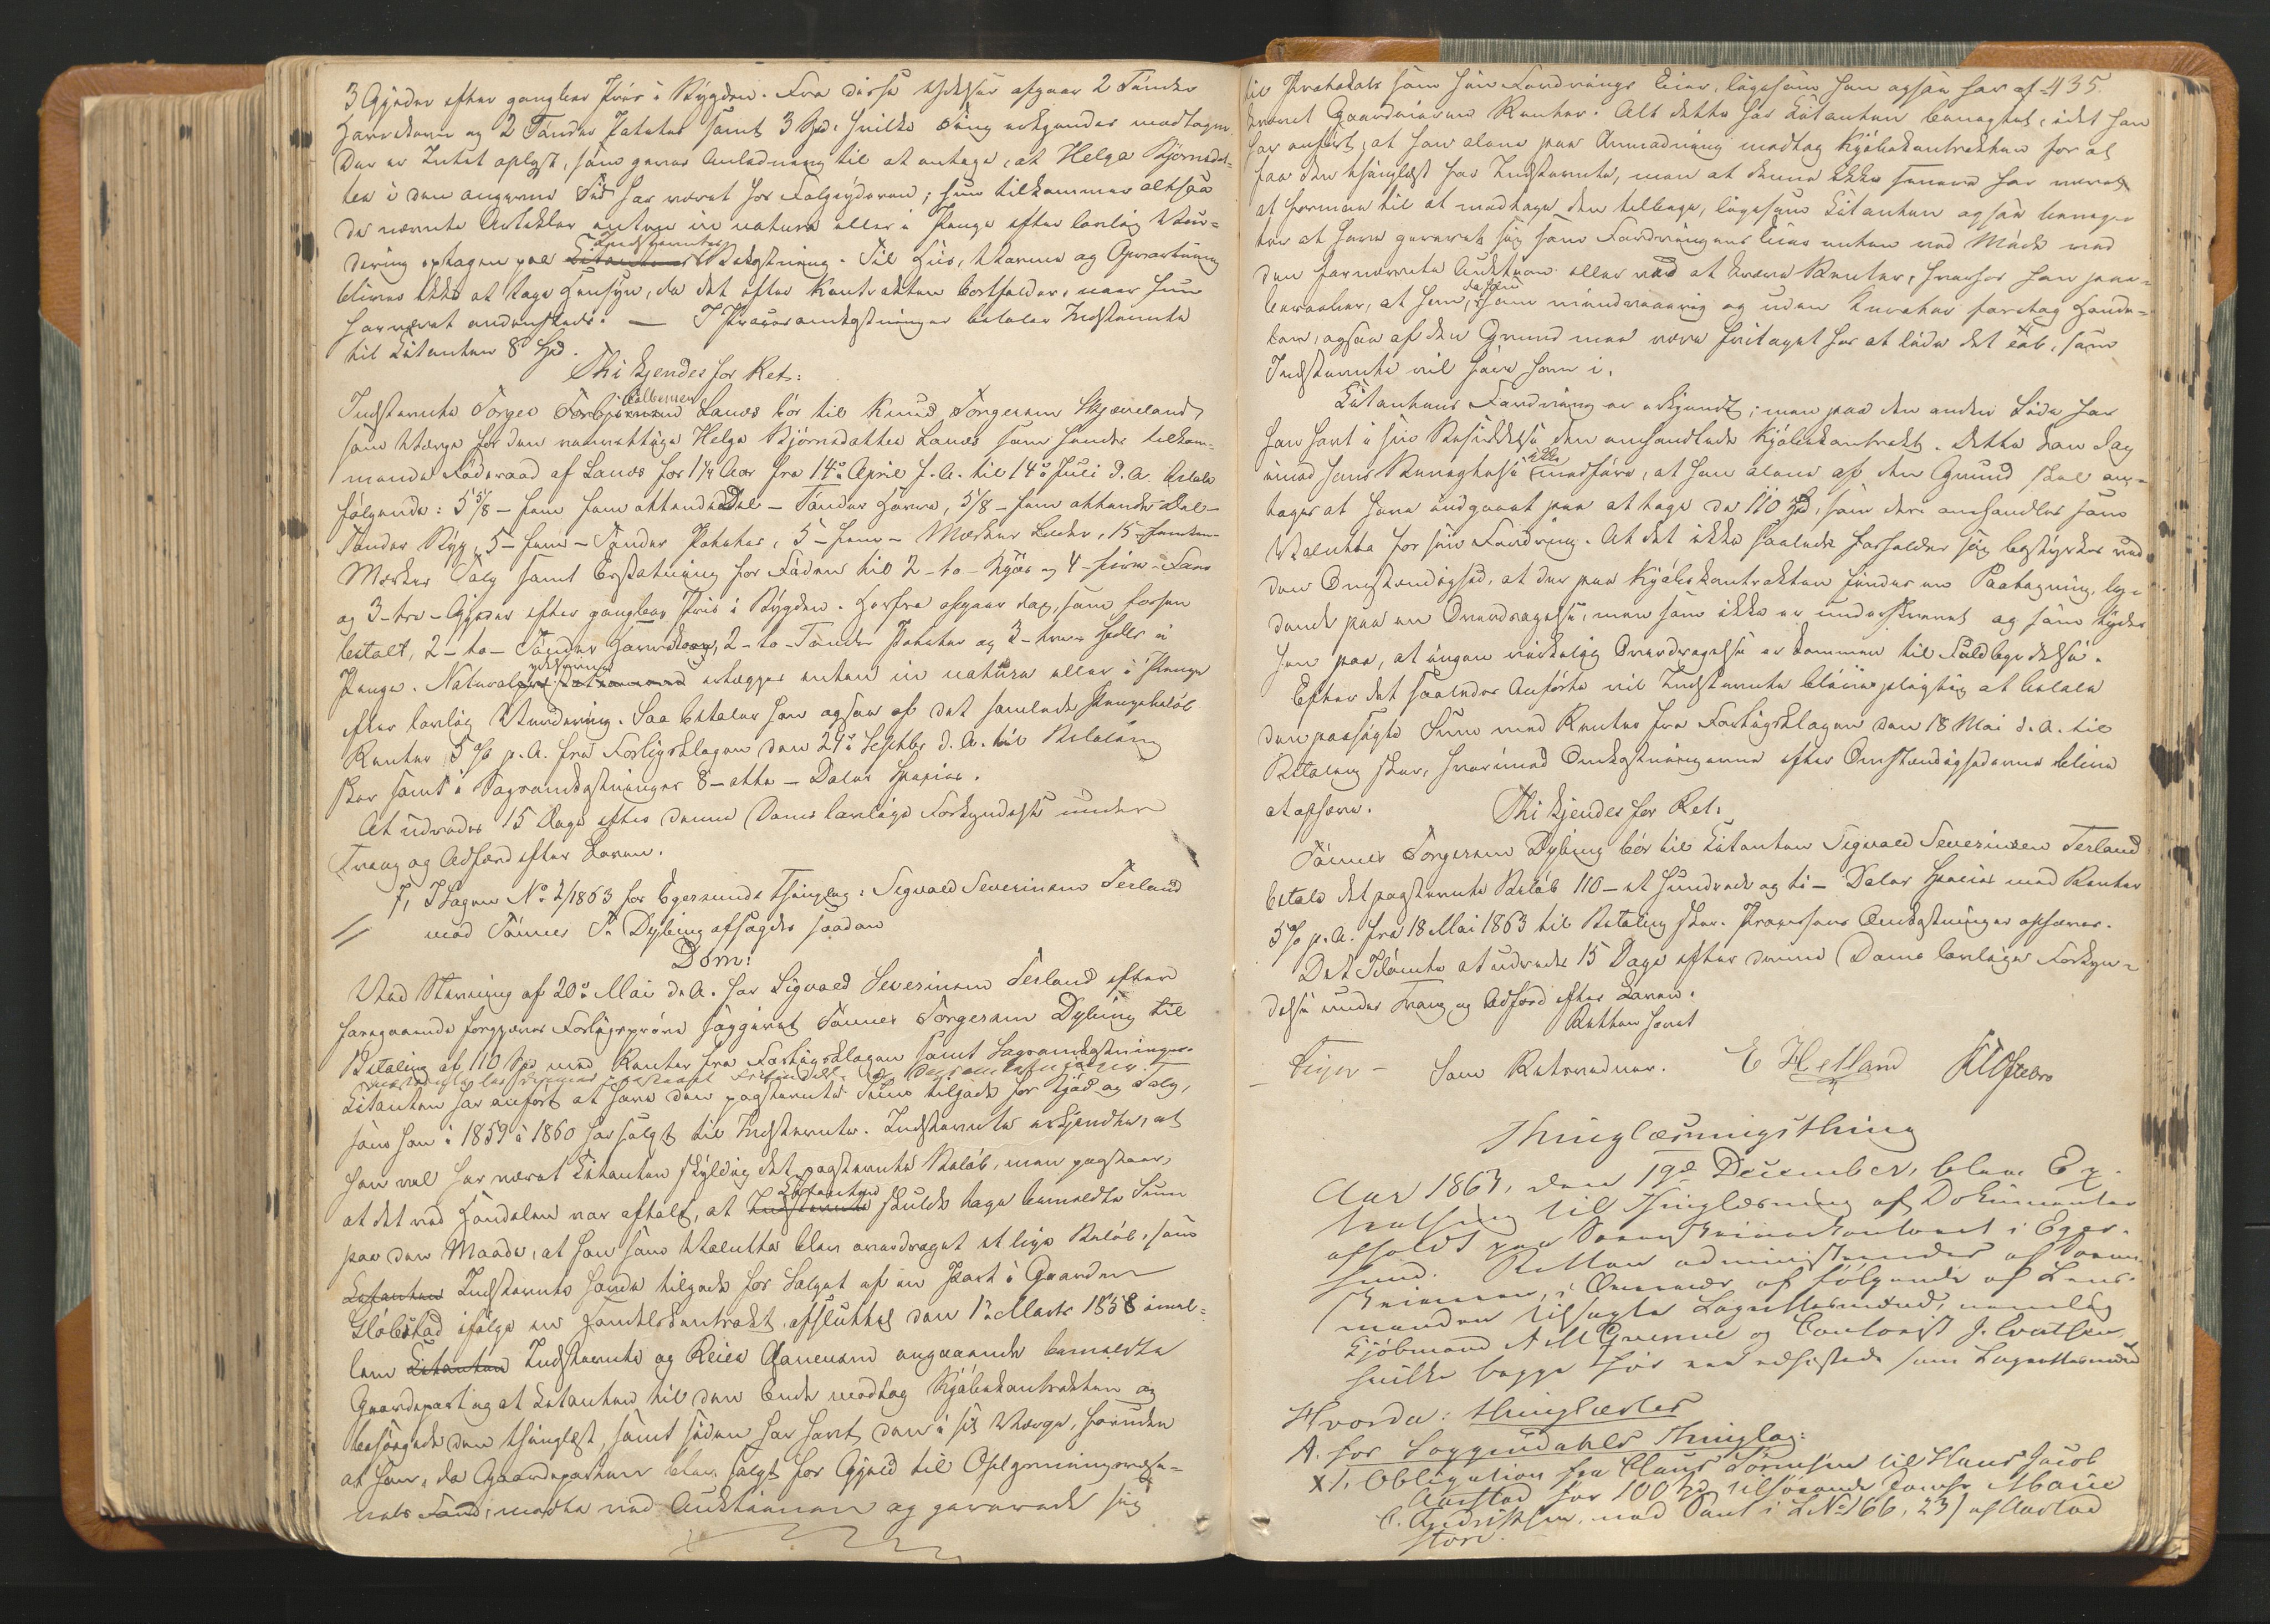 3 Gjeder efter gangbar Priis i Bygden. Fra disse Ydelser afgaar 2 Tønder
Havrekorn og 2 Tønder Potetes samt 3 Spd. hvilke Ting erkjendes modtagne.
Der er Intet oplyst, som giver Anledning til at antage, at Helga Bjørnsdat-
ter i den angivne Tid har været hos Folgeyderen; hun tilkommer altsaa
de nævnte Artikler enten in natura eller i Penge efter lovlig Vur-
dering optagen paa Citantens Indstevntes Bekostning. Til Huus, Varme og Opvartning
bliver ikke at tage Hensyn, da det efter Kontrakten bortfalder, naar hun
har været andensteds. — I Procesomkostninger betaler Indstevnte
til Citanten 8 Spd.
Thi kjendes for Ret:
Indstevnte Torger Torbjørnsen Colbensen Lanes bør til Knud Torgersen Skjæveland
som Værge for den umyndige Helga Bjørnsdatter Lanes som hendes tilkom-
mende Føderaad af Lanes for 1¼ Aar fra 14de April f. A. til 14de Juli d. A. betale
følgende: 5 5/8 - fem fem ottendedel - Tønder Havre, 5/8 - fem ottende Del -
Tønder Byg, 5 - fem - Tønder Poteter, 5 - fem - Mærker Læder, 15 - femten
Mærker Talg samt Erstatning for Føden til 2 - to - Kjør og 4 - fire - Faar
og 3 - tre - Gjeder efter gangbar Priis i Bygden. Herfra afgaar dog, som forhen
betalt, 2 - to - Tønder Havrekorn, 2 - to - Tønder Poteter og 3 - tre - Spdlr i
Penge. Naturalydelserne erlægges enten in natura eller i Penge
efter lovlig Vurdering. Saa betaler han ogsaa af det samlede Pengebeløb
Renter 5 % p. A. fra Forligsklagen den 24de Septbr d. A. til Betaling
skeer samt i Sagsomkostninger 8 - otte - Daler Species.
At udredes 15 Dage efter denne Doms lovlige Forkyndelse under
Tvang og Adfærd efter Loven.
7, I Sagen No 2/1863 for Egersunds Thinglag: Sigvald Severinsen Terland
mod Tønnes T. Dybing afsagdes saadan
Dom:
Ved Stevning af 20de Mai d. A. har Sigvald Severinsen Terland efter
foregaaende forgjæves Forligsprøve søggivet Tønnes Torgersen Dybing til
Betaling af 110 Spd med Renter fra Forligsklagen samt Sagsomkostninger.
Citanten har anført at have den paastevnte Sum tilgode for Kjød og Talg,
som han i 1859 à 1860 har solgt til Indstevnte. Indstevnte erkjender, at
han vel har været Citanten skyldig det paastevnte Beløb, men paastaar,
at det ved Handelen var aftalt, at Indstevnte Citanten skulde tage bemeldte Sum
paa den Maade, at han som Valutta blev overdraget et lige Beløb, som
Citanten Indstevnte havde tilgode for Salget af en Part i Gaarden
Gløbstad ifølge en Handelskontrakt, afsluttet den 1ste Marts 1858 imel-
lem Citanten Indstevnte og Reier angaaende bemeldte
Gaardspart og at Citanten til den Ende modtog Kjøbekontrakten og
besørgede den thinglæst, samt siden har havt den i sit Værge, foruden
at han, da Gaardsparten blev solgt for Gjæld til Oplysningsvæse-
nets Fond, mødte ved Auktionen og gererede sig
435.
til Protokols som sin Fordrings Eier, ligesom han ogsaa har af-
krævet Gaardeieren Renter. Alt dette har Citanten benegtet, idet han
har anført, at han alene paa Anmodning modtog Kjøbekontrakten for at
faa den thinglæst for Indstevnte, men at denne ikke senere har været
at formaa til at modtage den tilbage, ligesom Citanten ogsaa beneg-
ter at have gereret sig som Fordringens Eier enten ved Møde ved
den fornævnte Auktion eller ved at kræve Renter, hvorhos han paa-
beraaber, at han, da han som mindreaarig og uden Kurator foretog Hande-
len, ogsaa af den Grund maa være fritaget for at lide det Tab, som
Indstevnte vil føre ham i.
Citantens Fordring er erkjendt; men paa den anden Side har
han havt i sin Besiddelse den omhandlede Kjøbekontrakt. Dette kan dog
imod hans Benegtelse ikke medføre, at han alene af den Grund skal an-
tages at have indgaaet paa at tage de 110 Spd, som deri omhandles som
Valutta for sin Fordring. At det ikke saaledes forholder sig bestyrkes ved
den Omstændighed, at der paa Kjøbekontrakten findes en Paategning, ly-
dende paa en Overdragelse, men som ikke er underskrevet og som tyder
hen paa, at ingen virkelig Overdragelse er kommen til Fuldbyrdelse.
Efter det saaledes Anførte vil Indstevnte blive pligtig at betale
den paasagte Sum med Renter fra Forligsklagen den 18 Mai d. A. til
Betaling skeer, hvorimod Omkostningerne efter Omstændighederne blive
at ophæve.
Thi kjendes for Ret:
Tønnes Torgersen Dybing bør til Citanten Sigvald Severinsen Terland
betale det paastevnte Beløb 110 - et Hundrede og ti - Daler Species med Renter
5 % p. A. fra 18 Mai 1863 til Betaling skeer. Processens Omkostninger ophæves.
Det Idømte at udredes 15 Dage efter denne Doms lovlige Forkyn-
delse under Tvang og Adfærd efter Loven.
Retten hævet
- Feyer - Som Retsvidner. E Hetland
Thinglæsningsthing
Aar 1863, den 19de December, blev Ex-
trathing til Thinglæsning af Dokumenter
afholdt paa Sorenskriverkontoret i Eger-
sund. Retten administreredes af Soren-
skriveren, i Overvær af følgende af Lens-
manden tilsagte Lagrettesmænd, nemlig
Kjøbmand A M Grenne og Contorist J. Evertsen,
hvilke begge før ere edfæstede som Lagrettesmænd
Hvorda: thinglæstes
A. for Soggendahls Thinglag:
X 1, Obligation fra Claus Tønnesen til Hans Jacob
Aarstad for 100 Spd tilhørende Jomfr Marie
C. Andersen, med Pant i L No 166, 231 af Aarstad
store.